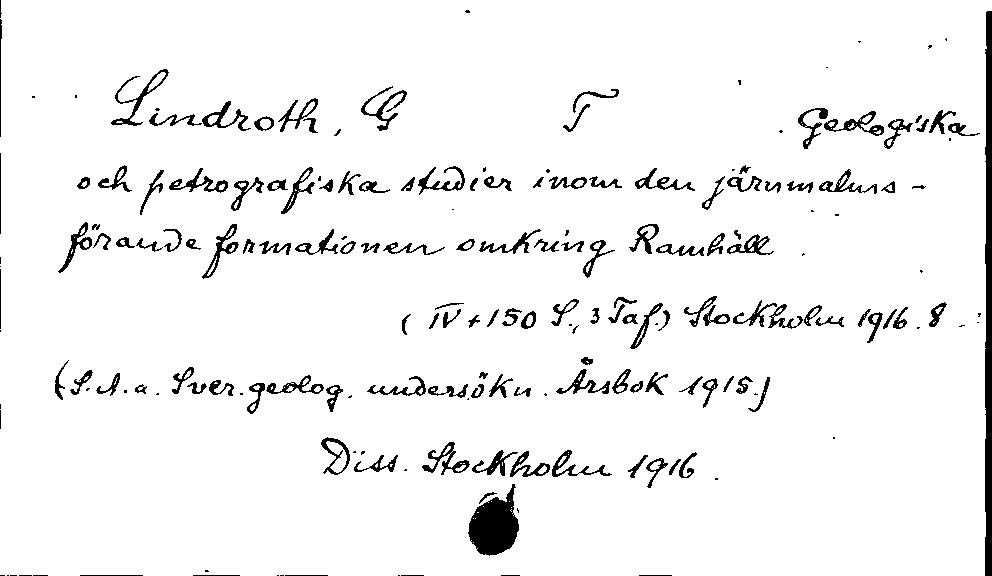 Lindroth, G T Geologiska
och petrografiska studier inom den järnmalms-
förande formationen omkring Ramhäll.
(IV+150 S., 3 Taf.) Stockholm 1916. 8
(S.A.a. Sver. geolog. undersökn. Årsbok 1915)
Diss. Stockholm 1916.